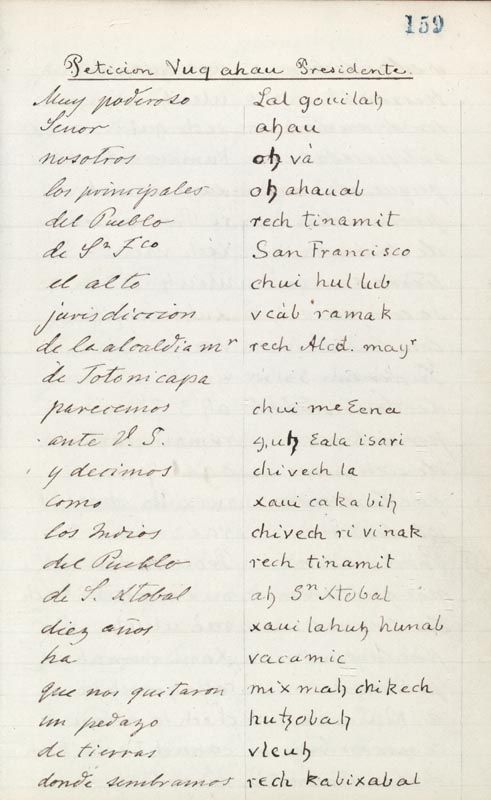 159
Peticion Vuq ahau Presidente.
Muy poderoso Lal gouilaꜧ
Señor aꜧau
nosotros oꜧ và
los principales oꜧ ahauab
del Pueblo rech tinamit
de Sn Fco San Francisco
el alto chui hullub
jurisdiccion vcàb ramak
de la alcaldia mr rech Alcd. mayr
de Totonicapa
parecemos chui meEena
ante V. S. Eala isari
y decimos chivech la
como xaui cakabiꜧ
los Indios chivech ri vinak
del Pueblo rech tinamit
de S. Xtobal aꜧ Sn Xtobal
diez años xaui lahuꜧ hunab
ha vacamic
que nos quitaron mix maꜧ chikech
un pedazo hutzobaꜧ
de tierras vleuꜧ
donde sembramos rech kabixabal